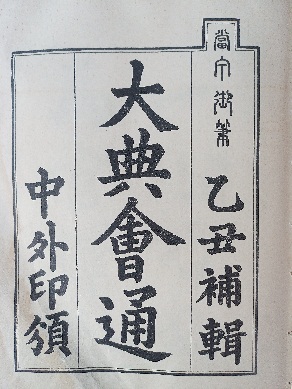 當宁御筆
乙丑補輯
大典會通
中外印頒